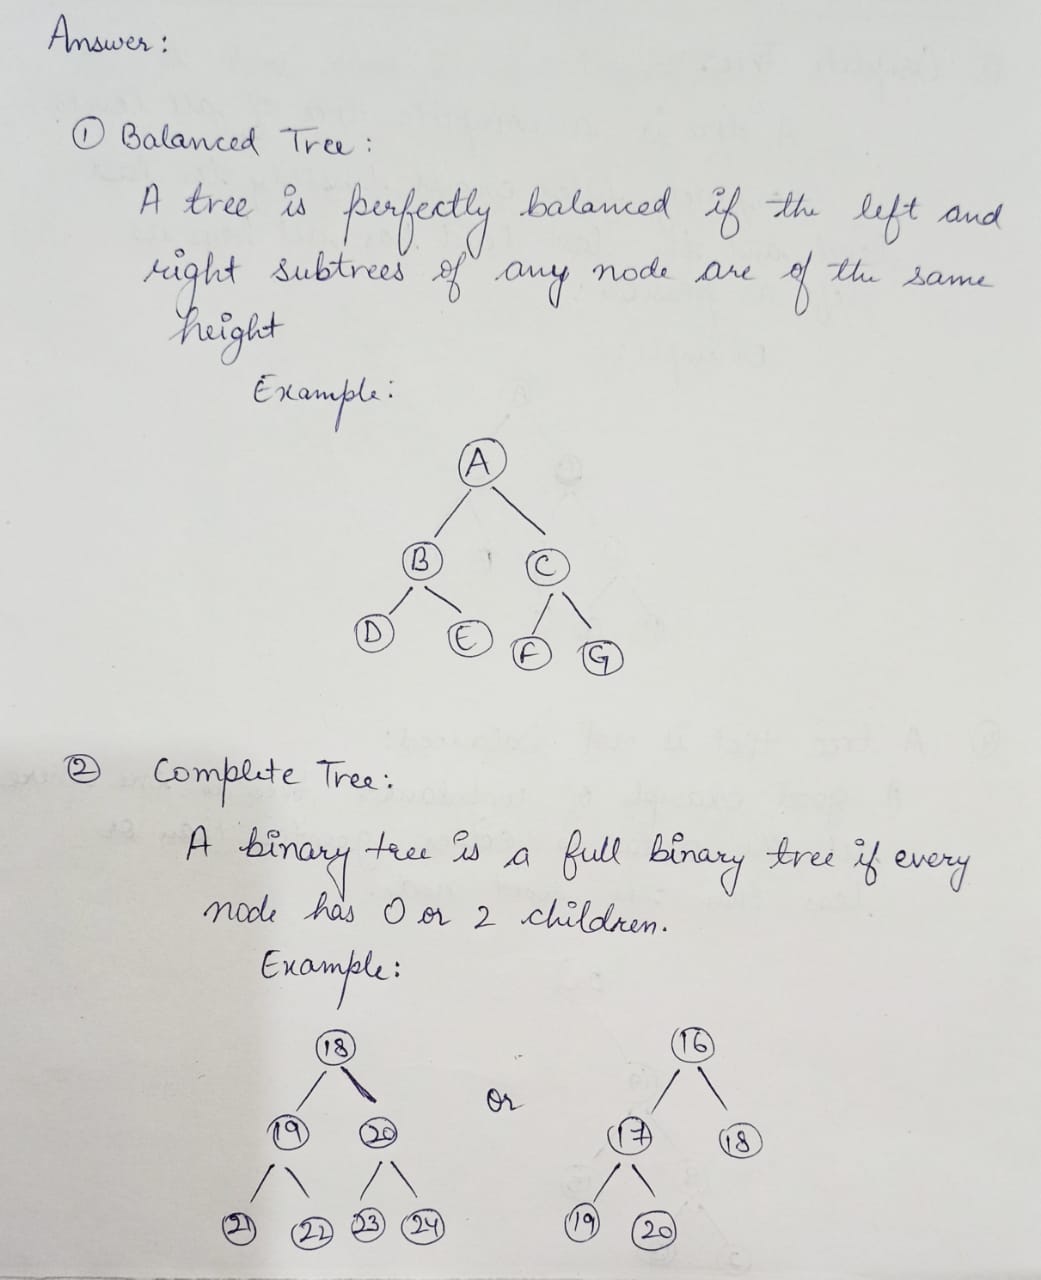 Answer:
① Balanced Tree:
A tree is perfectly balanced if the left and
right subtrees of any node are of the same
height
Example:
A
B C
D E F G
② Complete Tree:
A binary tree is a full binary tree if every
node has 0 or 2 children.
Example:
18 16
19 20 or 17 18
21 22 23 24 19 20